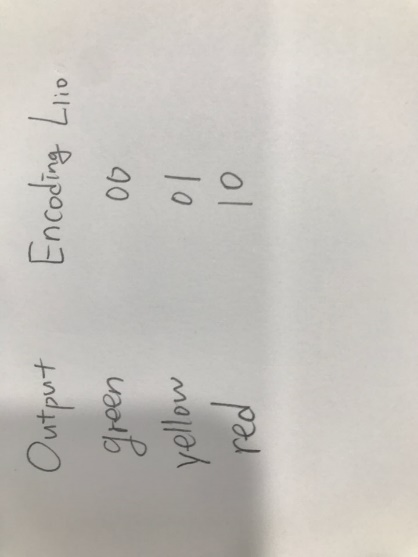 Output Encoding L1:0
green 00
yellow 01
red 10